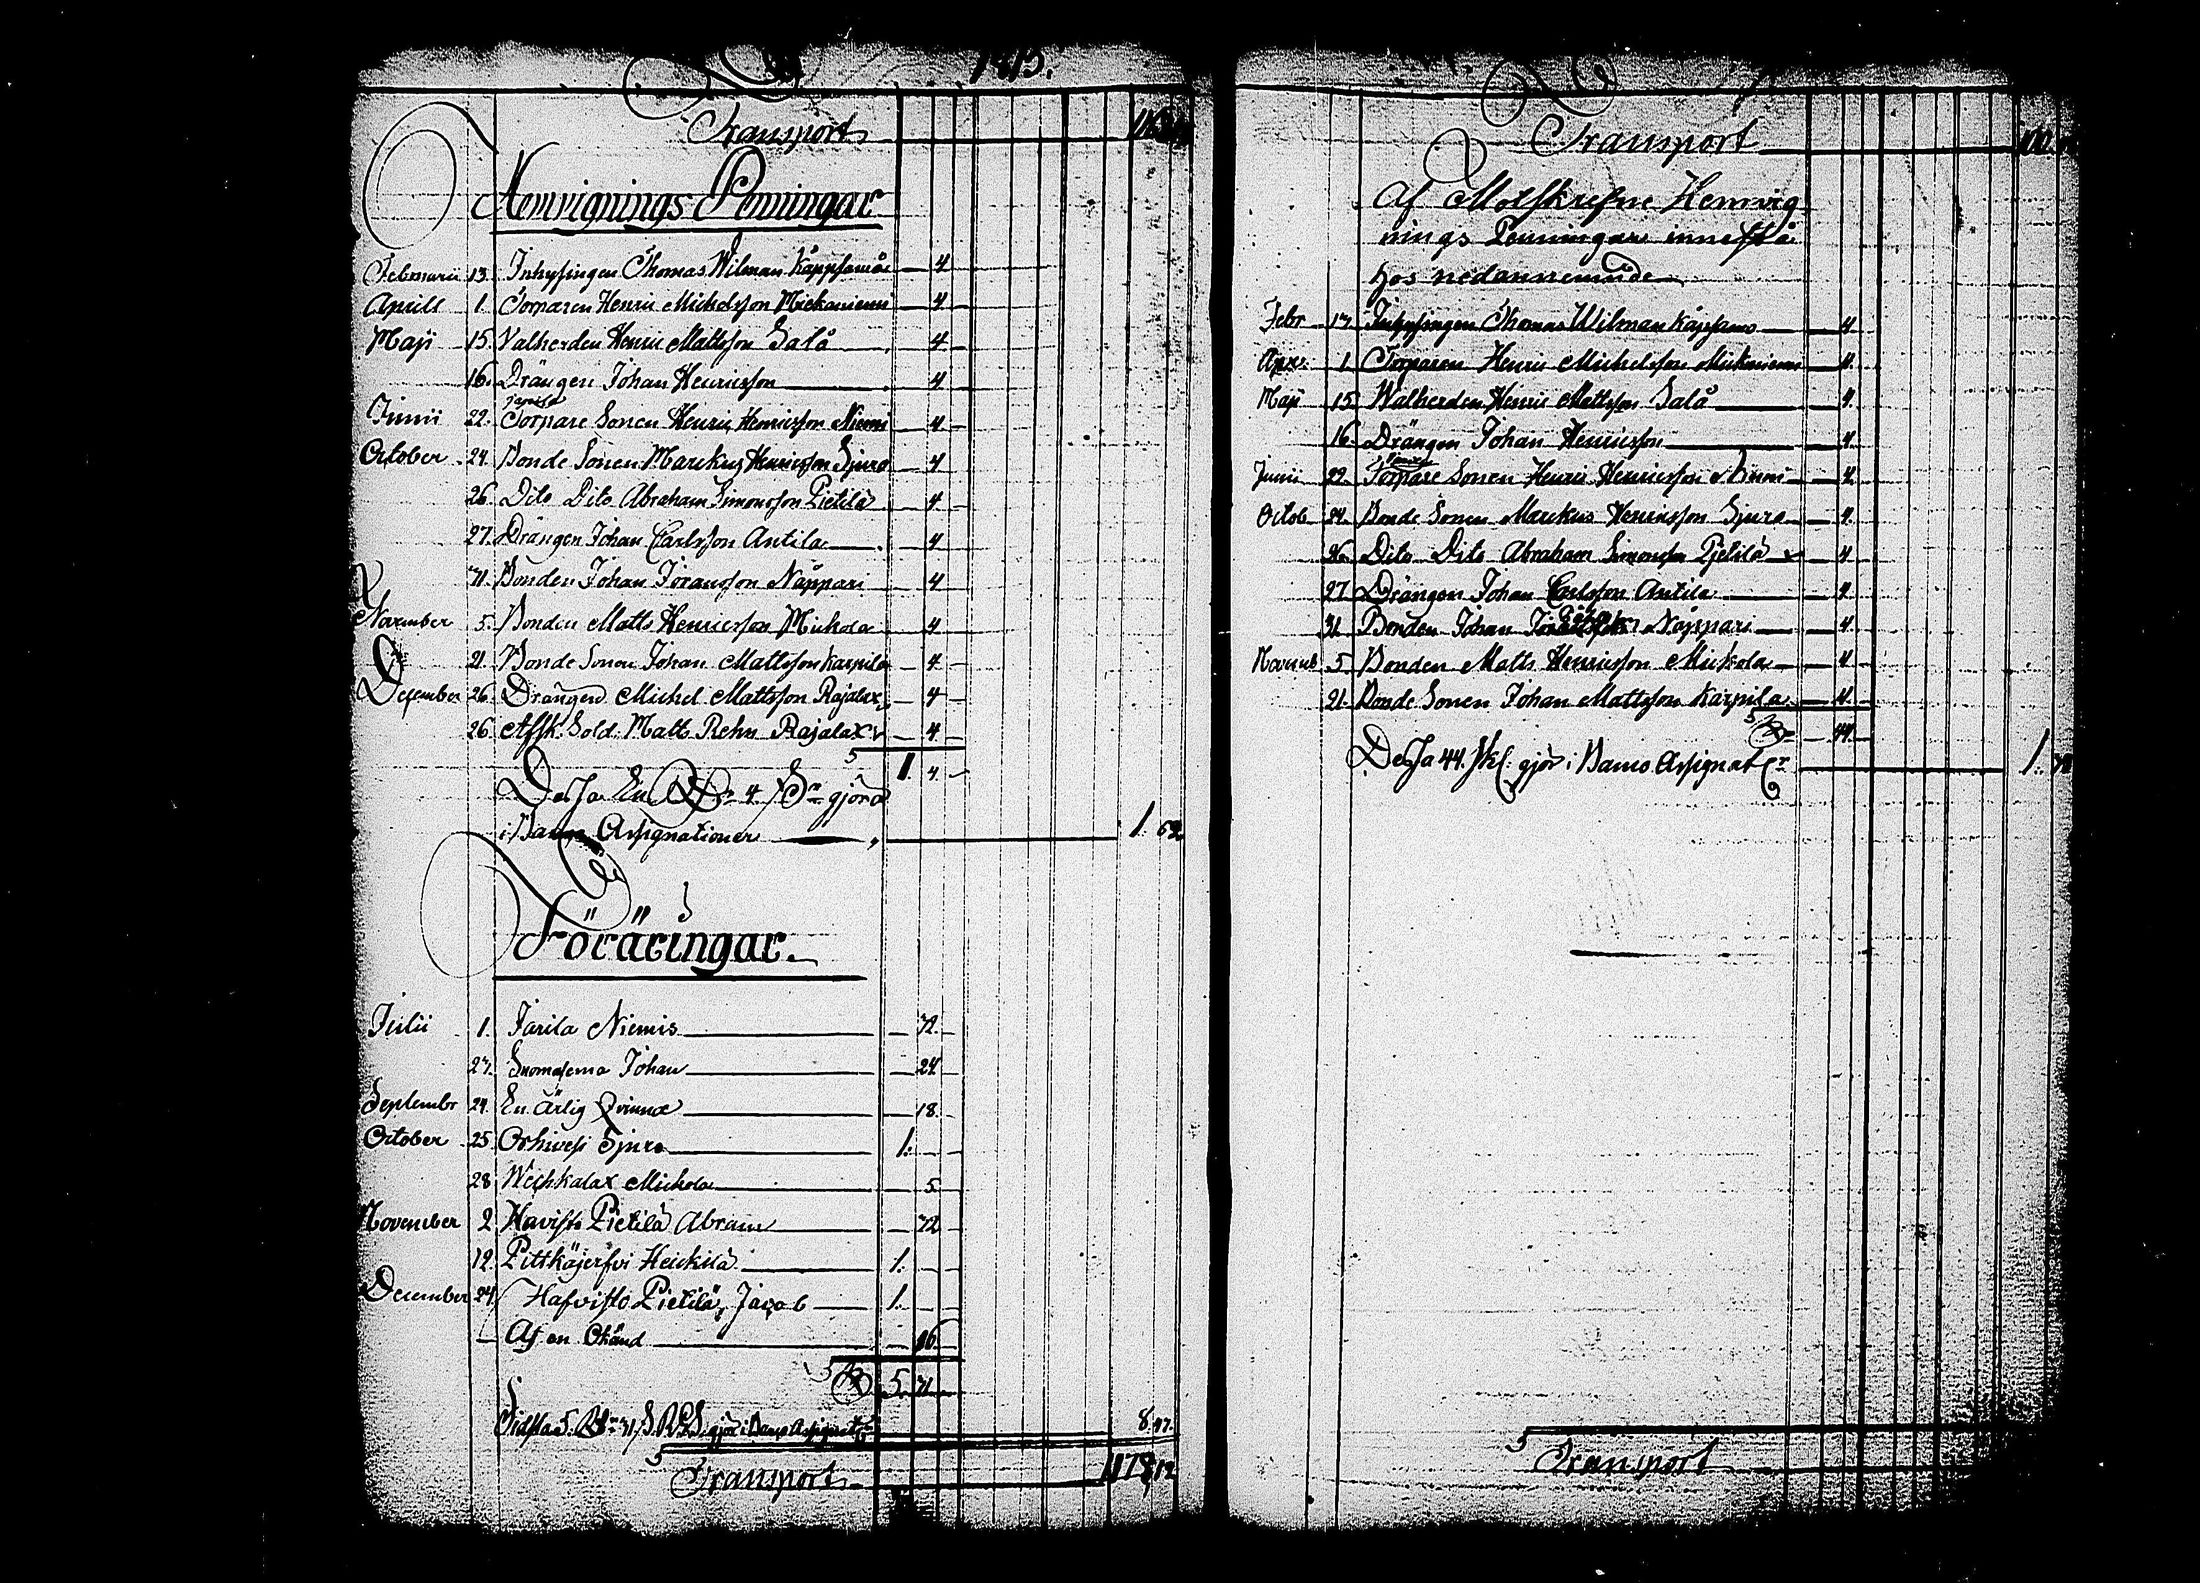 1815.
Transport
Hemvignings Penningar
Februarii 13. Inhysingen Thomas Wilman Käppsamåe 4
Aprill 1. Torparen Henric Michelsson Mickaniemi 4
Maji 15. Valherden Henric Mattsson Salå 4
16. Drängen Johan Henricsson 4
Junii 22. Torpare Sonen Henric Henricsson Niemi 4
October 24. Bonde Sonen Marckus Henricsson Sjura 4
26. Dito Dito Abraham Simonsson Pietilä 4
27. Drängen Johan Carlsson Antila 4
31. Bonden Johan Joransson Näppari 4
November 5. Bonden Matts Henricsson Mickola 4
21. Bonde Sonen Johan Mattsson Karpila 4
December 26. Drängen Michel Mattsson Rajalax 4
26. Afsk. Sold. Matts Rehn Rajalax 4
1 4
Dessa En Rdr 4 /Sr gjöra
i Banco Assignationer 1. 62
Föräringar.
Julii 1. Jarila Niemis 72.
27. Suomasema Johan 24
Septembr 24. En ärlig Qvinna 18.
October 25. Orhivesi Sjura 1.
28 Weihkalax Mickola 5
November 2. Havisto Pietilä Abram 72
12. Pittkäjerfvi Heickilä 1.
December 24. Hafvisto Pietilä, Jacob 1.
Af en Okänd 16.
5. 71
gjör i Banco Assignat 8. 47.
Transport 178. 12
Transport
Af Motskrefne Hemvig
nings Penningar innestå
hos nedannemnde
Febr 13. Inhysingen Thomas Wilman Käpsamo 4
Apr. 1. Torparen Henric Michelsson Mickaniemi 4.
Maji 15. Walherden Henric Mattsson Salå 4.
16. Drängen Johan Henricsson 4.
Junii 22. Torpare Sonen Henric Henricsson Niemi 4.
Octob. 24. Bonde Sonen Marckus Henricsson Sjura 4.
26. Dito Dito Abraham Simonsson Pietilä 4
27 Drängen Johan Carlsson Antila 4
31. Bonden Johan Näppari 4
Novemb 5 Bonden Matts Henricsson Mickola 4
21. Bonde Sonen Johan Mattsson Karpila 4
44.
Dessa 44. skl. gjör i Banco Assignat 1.
Transport